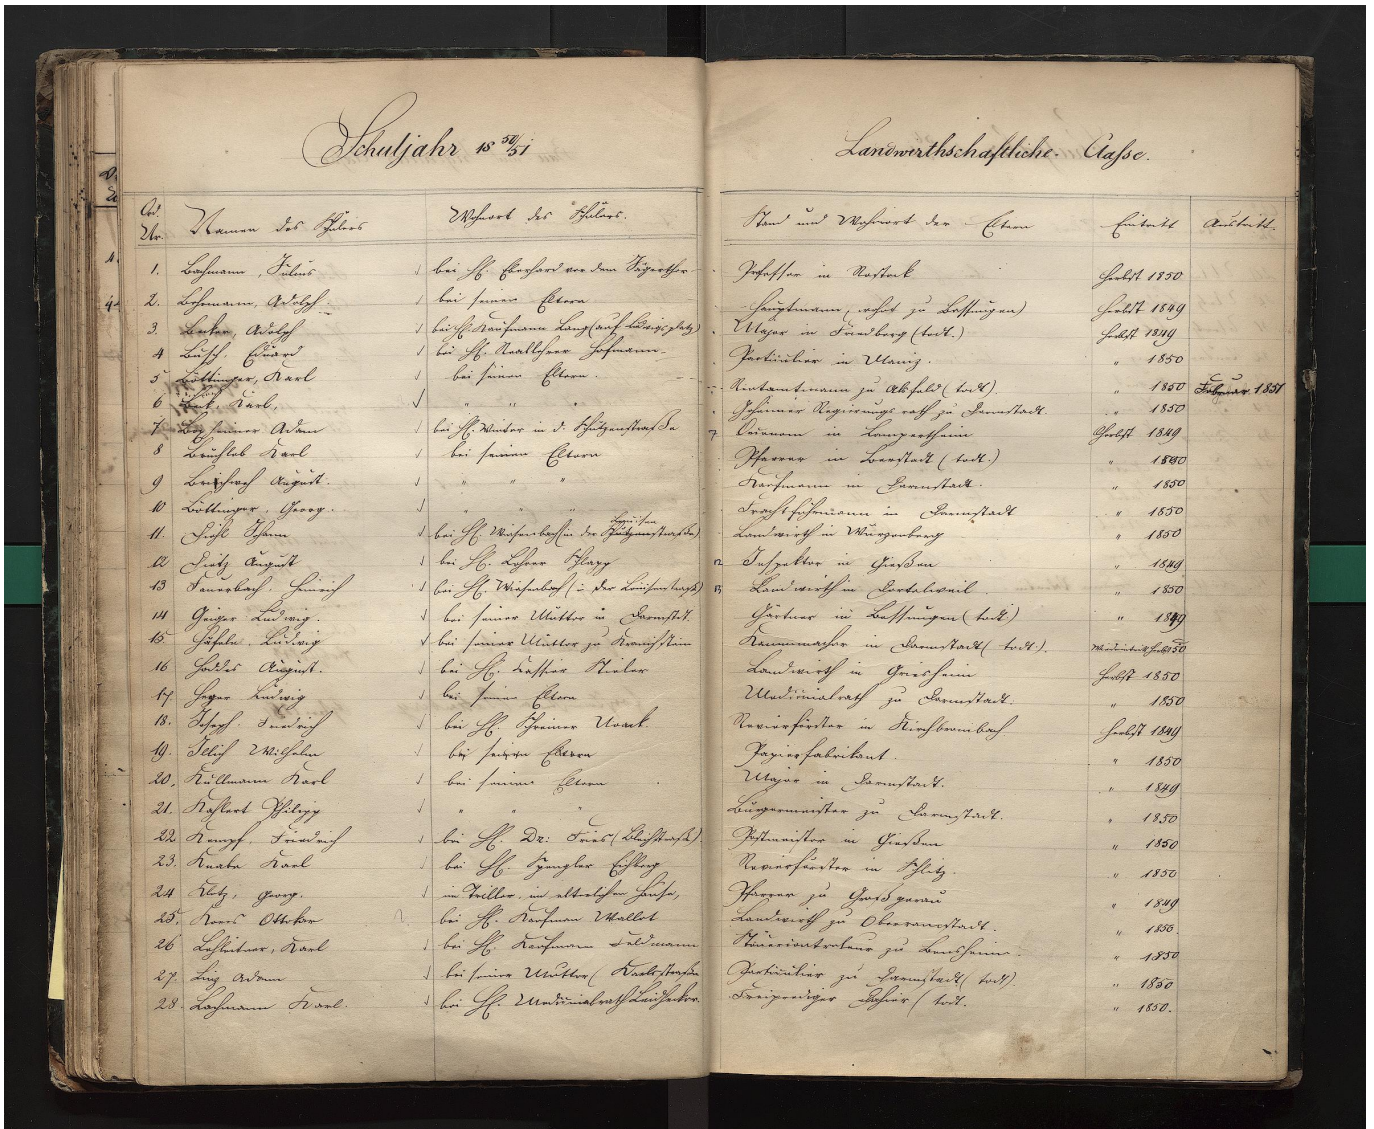 Schuljahr 18 50/51
Landwirthschaftliche Classe.
Ord. Nr. Namen des Schülers Wohnort des Schülers. Stand und Wohnort der Eltern Eintritt Austritt.
1. Bachmann, Julius bei H. Eberhard vor dem Jägerthor Professor in Rostock Herbst 1850
2. Adolph bei seinen Eltern Hauptmann, wohnt zu Bessungen) Herbst 1849
3. Becker, Adolph bei H. Kaufmann Lang (auf Ludwigsplatz) Major in Friedberg (todt.) Herbst 1849
4 Busch, Eduard bei H. Reallehrer Hofmann Particulier in Mainz. " 1850
5 Böttinger, Karl bei seinen Eltern. Rentamtmann zu Alsfeld (todt). " 1850 Februar 1851
6 Karl, " " " Geheimer Regierungsrath zu Darmstadt. " 1850
7. Adam bei H. Winter in d. Schützenstraße Oeconom in Lampertheim Herbst 1849
8 Karl bei seinen Eltern Pfarrer in Berstadt (todt.) " 1850
9 August. " " " Kaufmann in Darmstadt. " 1850
10 Böttinger, Georg. " " " Frachtfuhrmann in Darmstadt " 1850
11. Diehl Johann bei H. Wiesenbach (in der Louisen straße) Landwirth in " 1850
12 Dietz August bei H. Lehrer Schlapp Inspektor in Gießen " 1849
13 Feuerbach, Heinrich bei H. Wiesenbach (in der Louisenstraße) Landwirth in Dortelweil " 1850
14 Geiger Ludwig. bei seiner Mutter in Darmstadt. Gärtner in Bessungen (todt) " 1849
15. Ludwig bei seiner Mutter zu Kranichstein Kammmacher in Darmstadt (todt.). Wiedereintritt Herbst 50
16 Hoddes August. bei H. Cassier Stieler Landwirth in Griesheim Herbst 1850
17. Heyer Ludwig bei seinen Eltern Medicinalrath zu Darmstadt. " 1850
18. Joseph Friedrich bei H. Schreiner Noack Revierförster in Kirchbrombach Herbst 1849
19. Illich Wilhelm bei seinen Eltern Papierfabrikant. " 1850
20. Kullmann Karl bei seinen Eltern Major in Darmstadt. " 1849
21. Kahlert Philipp " " " Bürgermeister zu Darmstadt. " 1850
22. Kempf, Friedrich bei H. Dr: Fries (Bleichstraße). Postmeister in Gießen " 1850
23. Knabe Karl bei H. Spengler Eichberg Revierförster in Schlitz. " 1850
24 Klotz, Georg. im elterlichen Hause, Pfarrer zu Großgerau " 1849
25. Kreis Ottokar bei H. Kaufmann Wallot Landwirth zu Oberramstadt. " 1850.
26 Lehleitner, Karl bei H. Kaufmann Feldmann zu Bensheim. " 1850
27. Linz Adam bei seiner Mutter (Karlsstraße Particulier zu Darmstadt (todt). " 1850
28. Lachmann Karl. bei H. Medicinalrath Leidhecker. Freiprediger dahier (todt. " 1850.